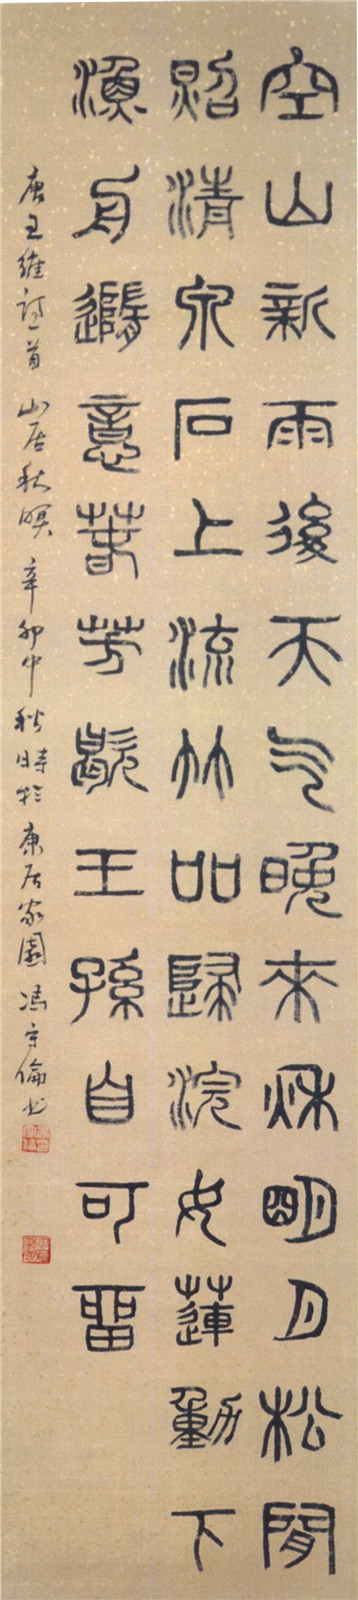 空山新雨後天气晚來秋明月松閒
照清泉石上流竹吅歸浣女蓮動下
漁舟隨意春芳歇王孫自可留
唐王維詩一首 山居秋暝 辛卯中秋時於康居家園 馮倫书